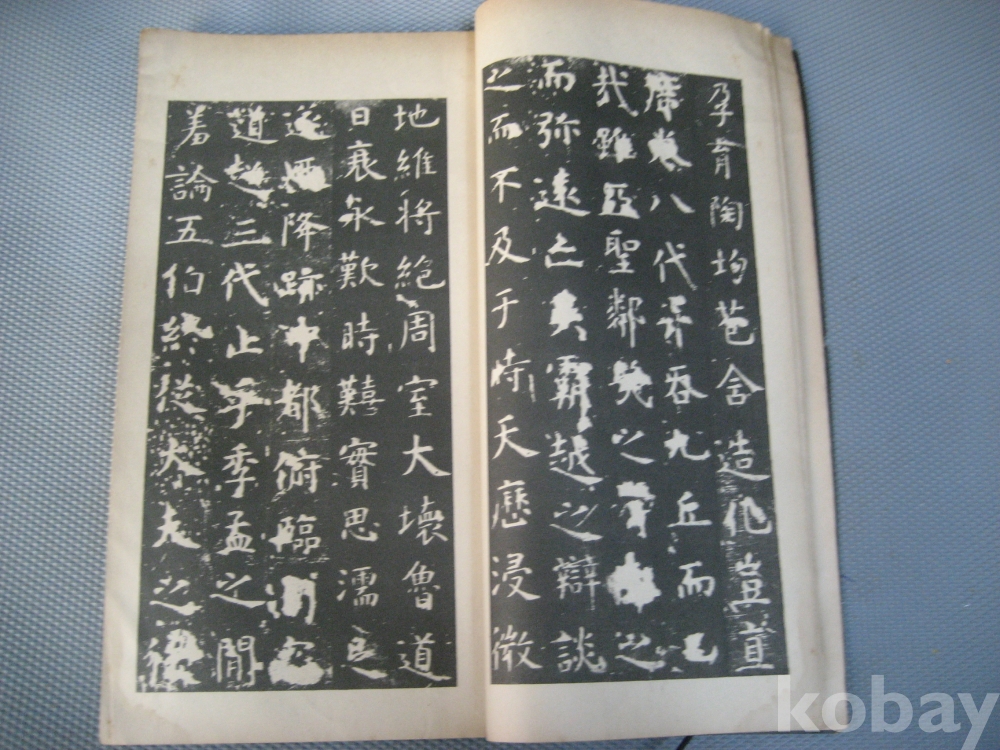 孕育陶均苞含造化豈直
席卷八代并吞九丘而已
哉雖亞聖鄰幾之智仰之
而弥遠亡吴霸越之辯談
之而不及于時天曆浸微
地維將絕周室大壞魯道
日衰永歎時囏實思濡足
遂迺降跡中都俯臨司寇
道超三代止乎季孟之閒
羞論五伯終從大夫之後
kobay